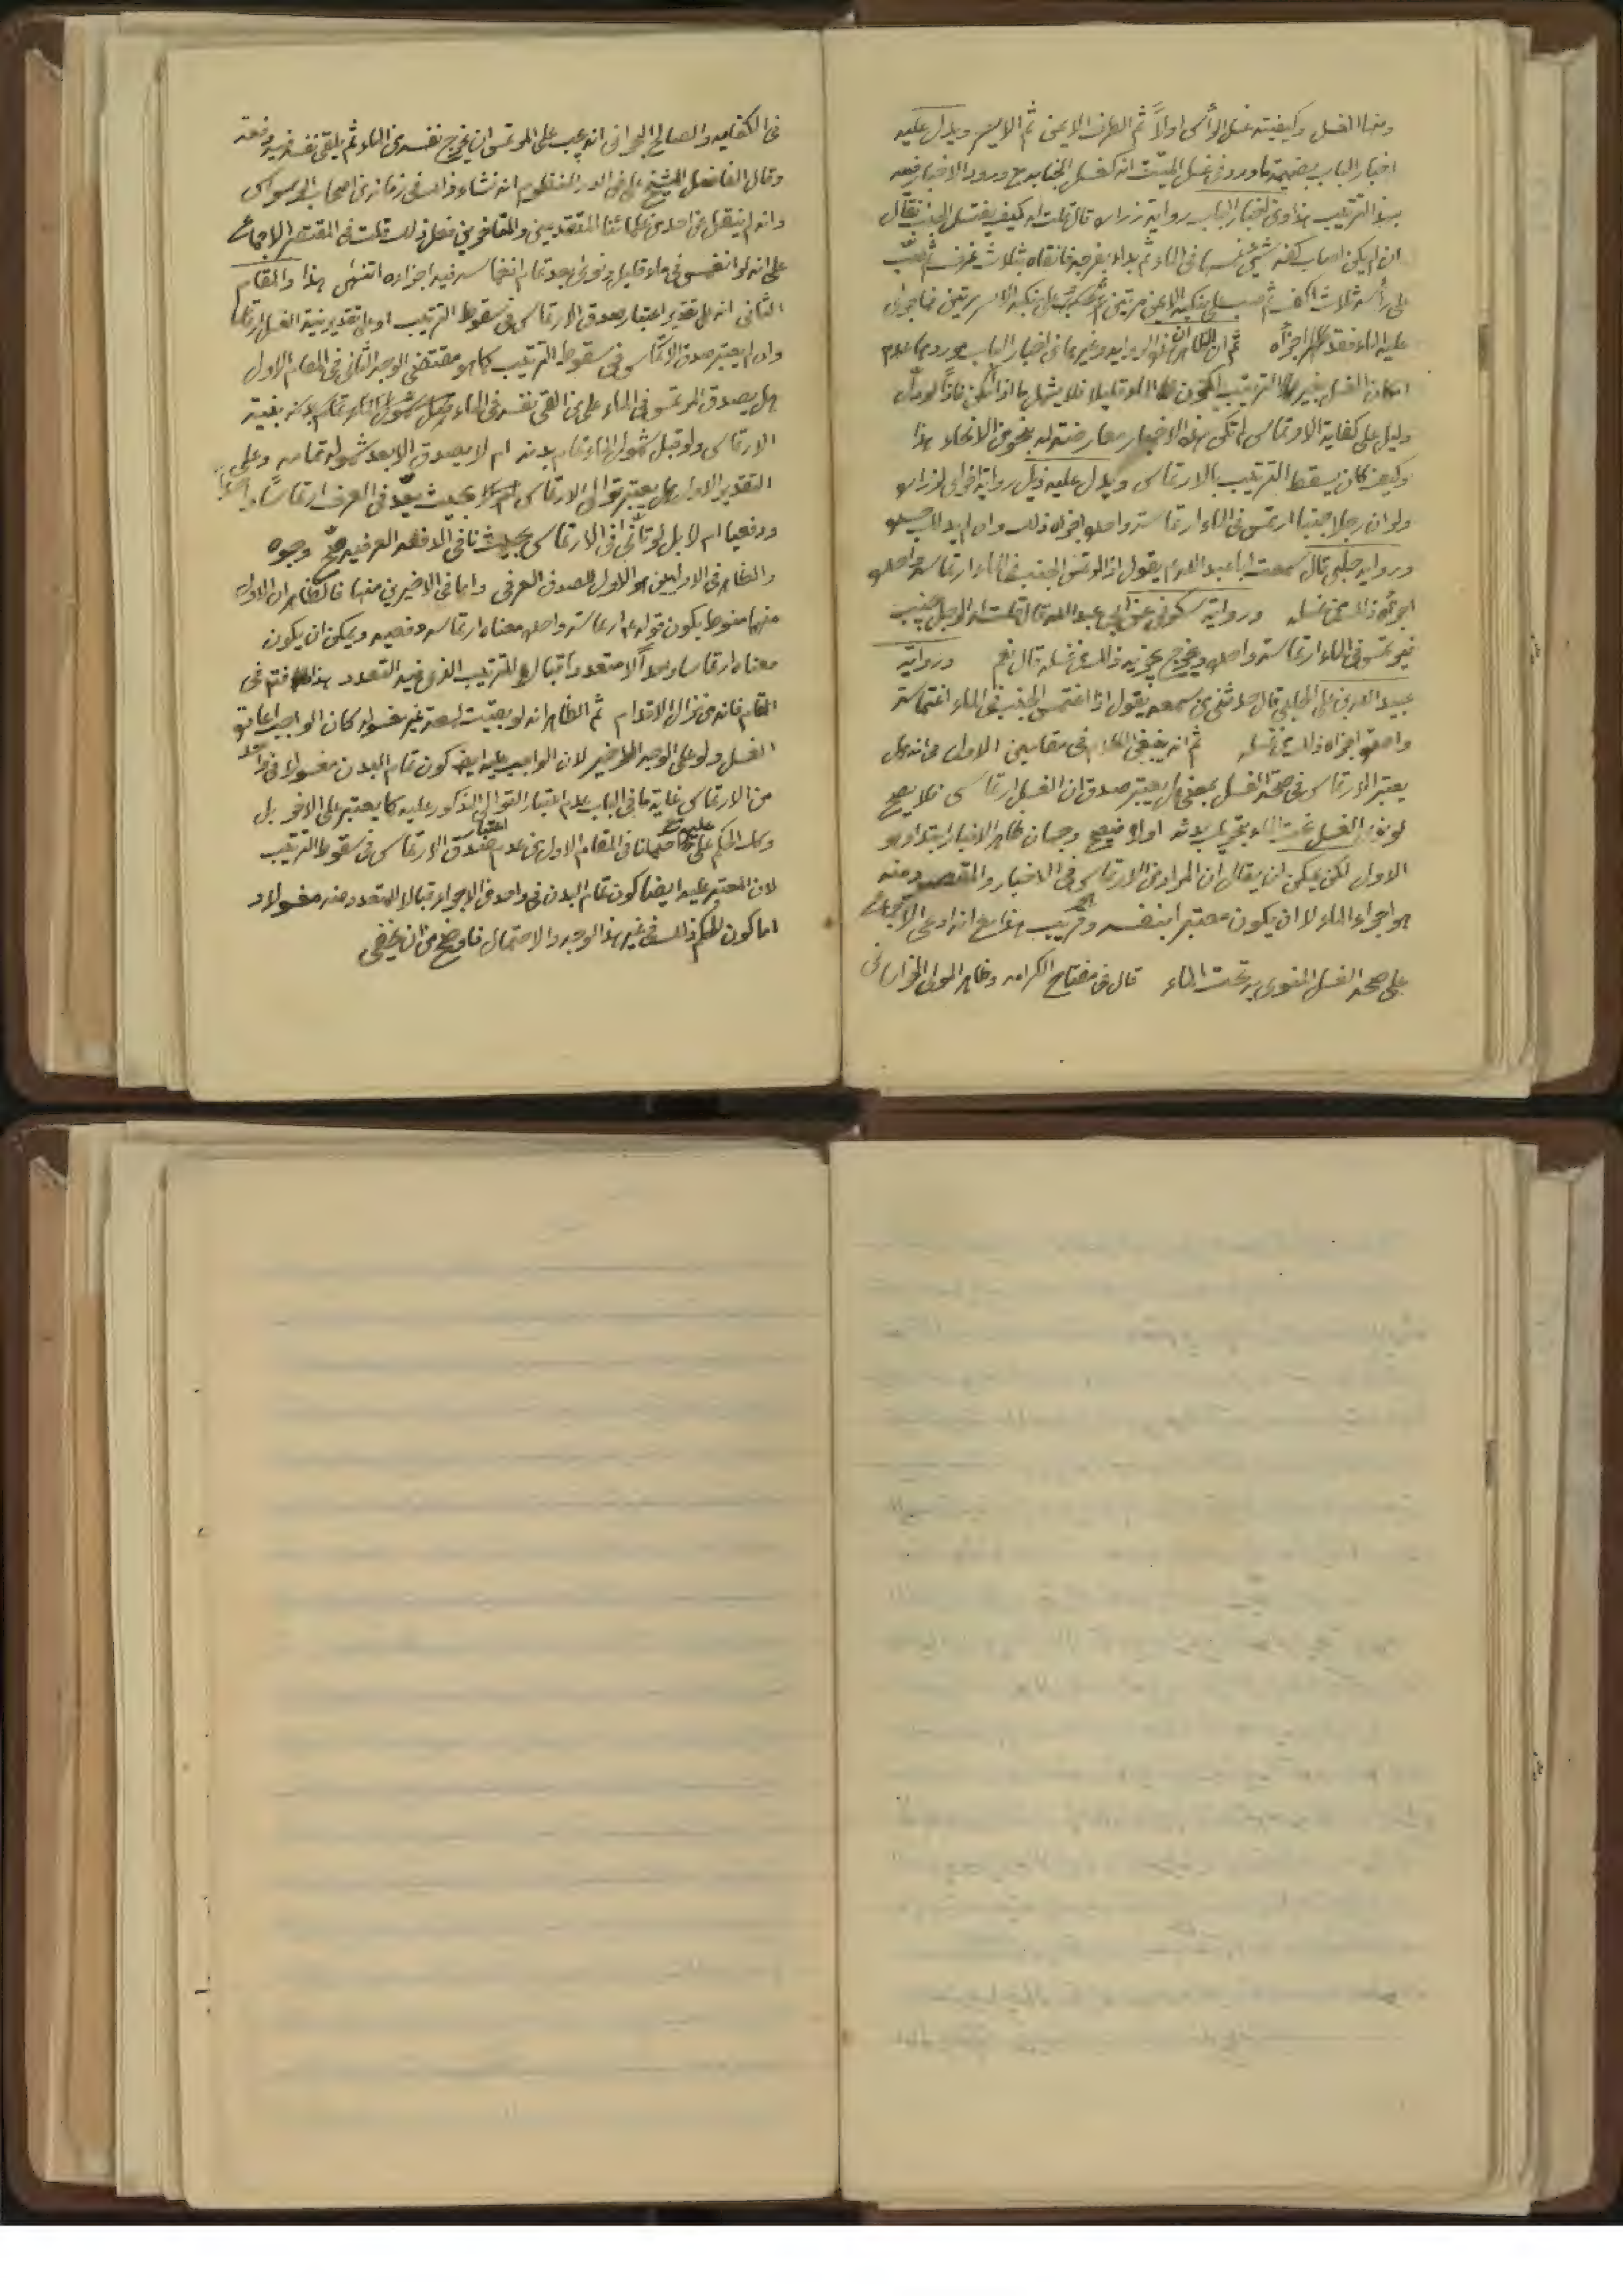 ومنها الغسل وكيفيته غسل الرأس اولاً ثم الطرف الايمن ثم الايسر ويدل عليه
اخبار الباب بضميمة ما ورد في غسل الميت انه كغسل الجنابة مع ورود الاخبار فيه
بهذا الترتيب هذا ومن اخبار الباب رواية زرارة قال قلت له كيف يغتسل الجنب فقال
ان لم يكن اصاب كفه شيء غمسها في الماء ثم بدء بفرجه فانقاه بثلاث غرف ثم صب
على رأسه ثلاث اكف ثم صب على منكبه الايمن مرتين وعلى منكبه الايسر مرتين فما جرى
عليه الماء فقد اجزأه ثم ان الظاهر ان هذه الرواية وغيرها من اخبار الباب موردها عدم
امكان الغسل بغير الترتيب لكون الماء قليلا فلا يشمل ما اذا امكن فاذا لو دل
دليل على كفاية الارتماس لم تكن هذه الاخبار معارضة له بنحو من الانحاء هذا
وكيف كان يسقط الترتيب بالارتماس ويدل عليه ذيل رواية اخرى لزرارة
ولو ان رجلا جنبا ارتمس في الماء ارتماسة واحدة اجزاه ذلك وان لم يدلك جسده
ورواية حلبي قال سمعت ابا عبد الله يقول اذا ارتمس الجنب في الماء ارتماسة واحدة
اجزأه ذلك من غسله ورواية سكوني عن ابي عبد الله قال قلت له الرجل يجنب
فيرتمس في الماء ارتماسة واحدة ويخرج يجزيه ذلك من غسله قال نعم ورواية
عبيد الله بن علي الحلبي قال حدثني من سمعه يقول اذا اغتمس الجنب في الماء اغتماسة
واحدة اجزاه ذلك من غسله ثم انه ينبغي الكلام في مقامين الاول في انه هل
يعتبر الارتماس في صحة الغسل بمعنى هل يعتبر صدق ان الغسل ارتماسي فلا يصح
لو نوى الغسل تحت الماء بتحريك بدنه اولا فيصح وجهان ظاهر الاخبار ابتداء هو
الاول لكن يمكن ان يقال ان المراد من الارتماس في الاخبار والمقصد منه
هو اجراء الماء لا ان يكون معتبرا بنفسه وقريب هذا مع انه ادعي الاجماع
على صحة الغسل المنوي به تحت الماء قال في مفتاح الكرامة وظاهر المولى الخراساني
في الكفاية والصالح البحراني انه يجب على المرتمس ان يخرج نفسه من الماء ثم يلقي نفسه فيه دفعة
وقال الفاضل الشيخ علي في الدر المنظوم انه نشاء ذلك في زمانه من اصحاب الوسواس
وانه لم ينقل عن احد من علمائنا المتقدمين والمتأخرين فعل ذلك قلت في المقتصر الاجماع
على انه لو انغمس في ماء قليل ونوى بعد تمام انغماسه فيه اجزاه انتهى هذا والمقام
الثاني انه على تقدير اعتبار صدق الارتماس في سقوط الترتيب او على تقدير نية الغسل ارتماسا
وان لم يعتبر صدق الارتماس في سقوط الترتيب كما هو مقتضى الوجه الثاني في المقام الاول
هل يصدق المرتمس في الماء على من القى نفسه في الماء بنية
الارتماس ولو قبل شمول الماء تمام بدنه ام لا يصدق الا بعد شموله تمامه وعلى
التقدير الاول هل يعتبر توالي الارتماس بحيث يعد في العرف ارتماسا واحدا
ودفعيا ام لا بل لو تأنى في الارتماس بحيث نافى الدفعة العرفية صح وجوه
والظاهر في الاولين هو الاول للصدق العرفي واما في الاخيرين منها فالظاهر ان الاول
منهما منوط بكون قوله ارتماسة واحدة معناه ارتماسة دفعية ويمكن ان يكون
معناه ارتماسا واحدا لا متعددا قبال الترتيب الذي فيه التعدد هذا فافهم في
المقام فانه من مزال الاقدام ثم الظاهر انه لو بقيت لمعة غير مغسولة كان الواجب اعادة
الغسل ولو على الوجه الاخير لان الواجب عليه ايضا كون تمام البدن مغسولا في واحد
من الارتماس غاية ما في الباب عدم اعتبار التوالي المذكور عليه كما يعتبر على الاخر بل
وكذا الحكم على ما احتملنا في المقام الاول من عدم اعتبار صدق الارتماس في سقوط الترتيب
لان المعتبر عليه ايضا كون تمام البدن في واحد من الاجراء قبالا للمتعدد منه مغسولا و
اما كون الحكم ذلك في غير هذا الوجه والاحتمال فاوضح من ان يخفى